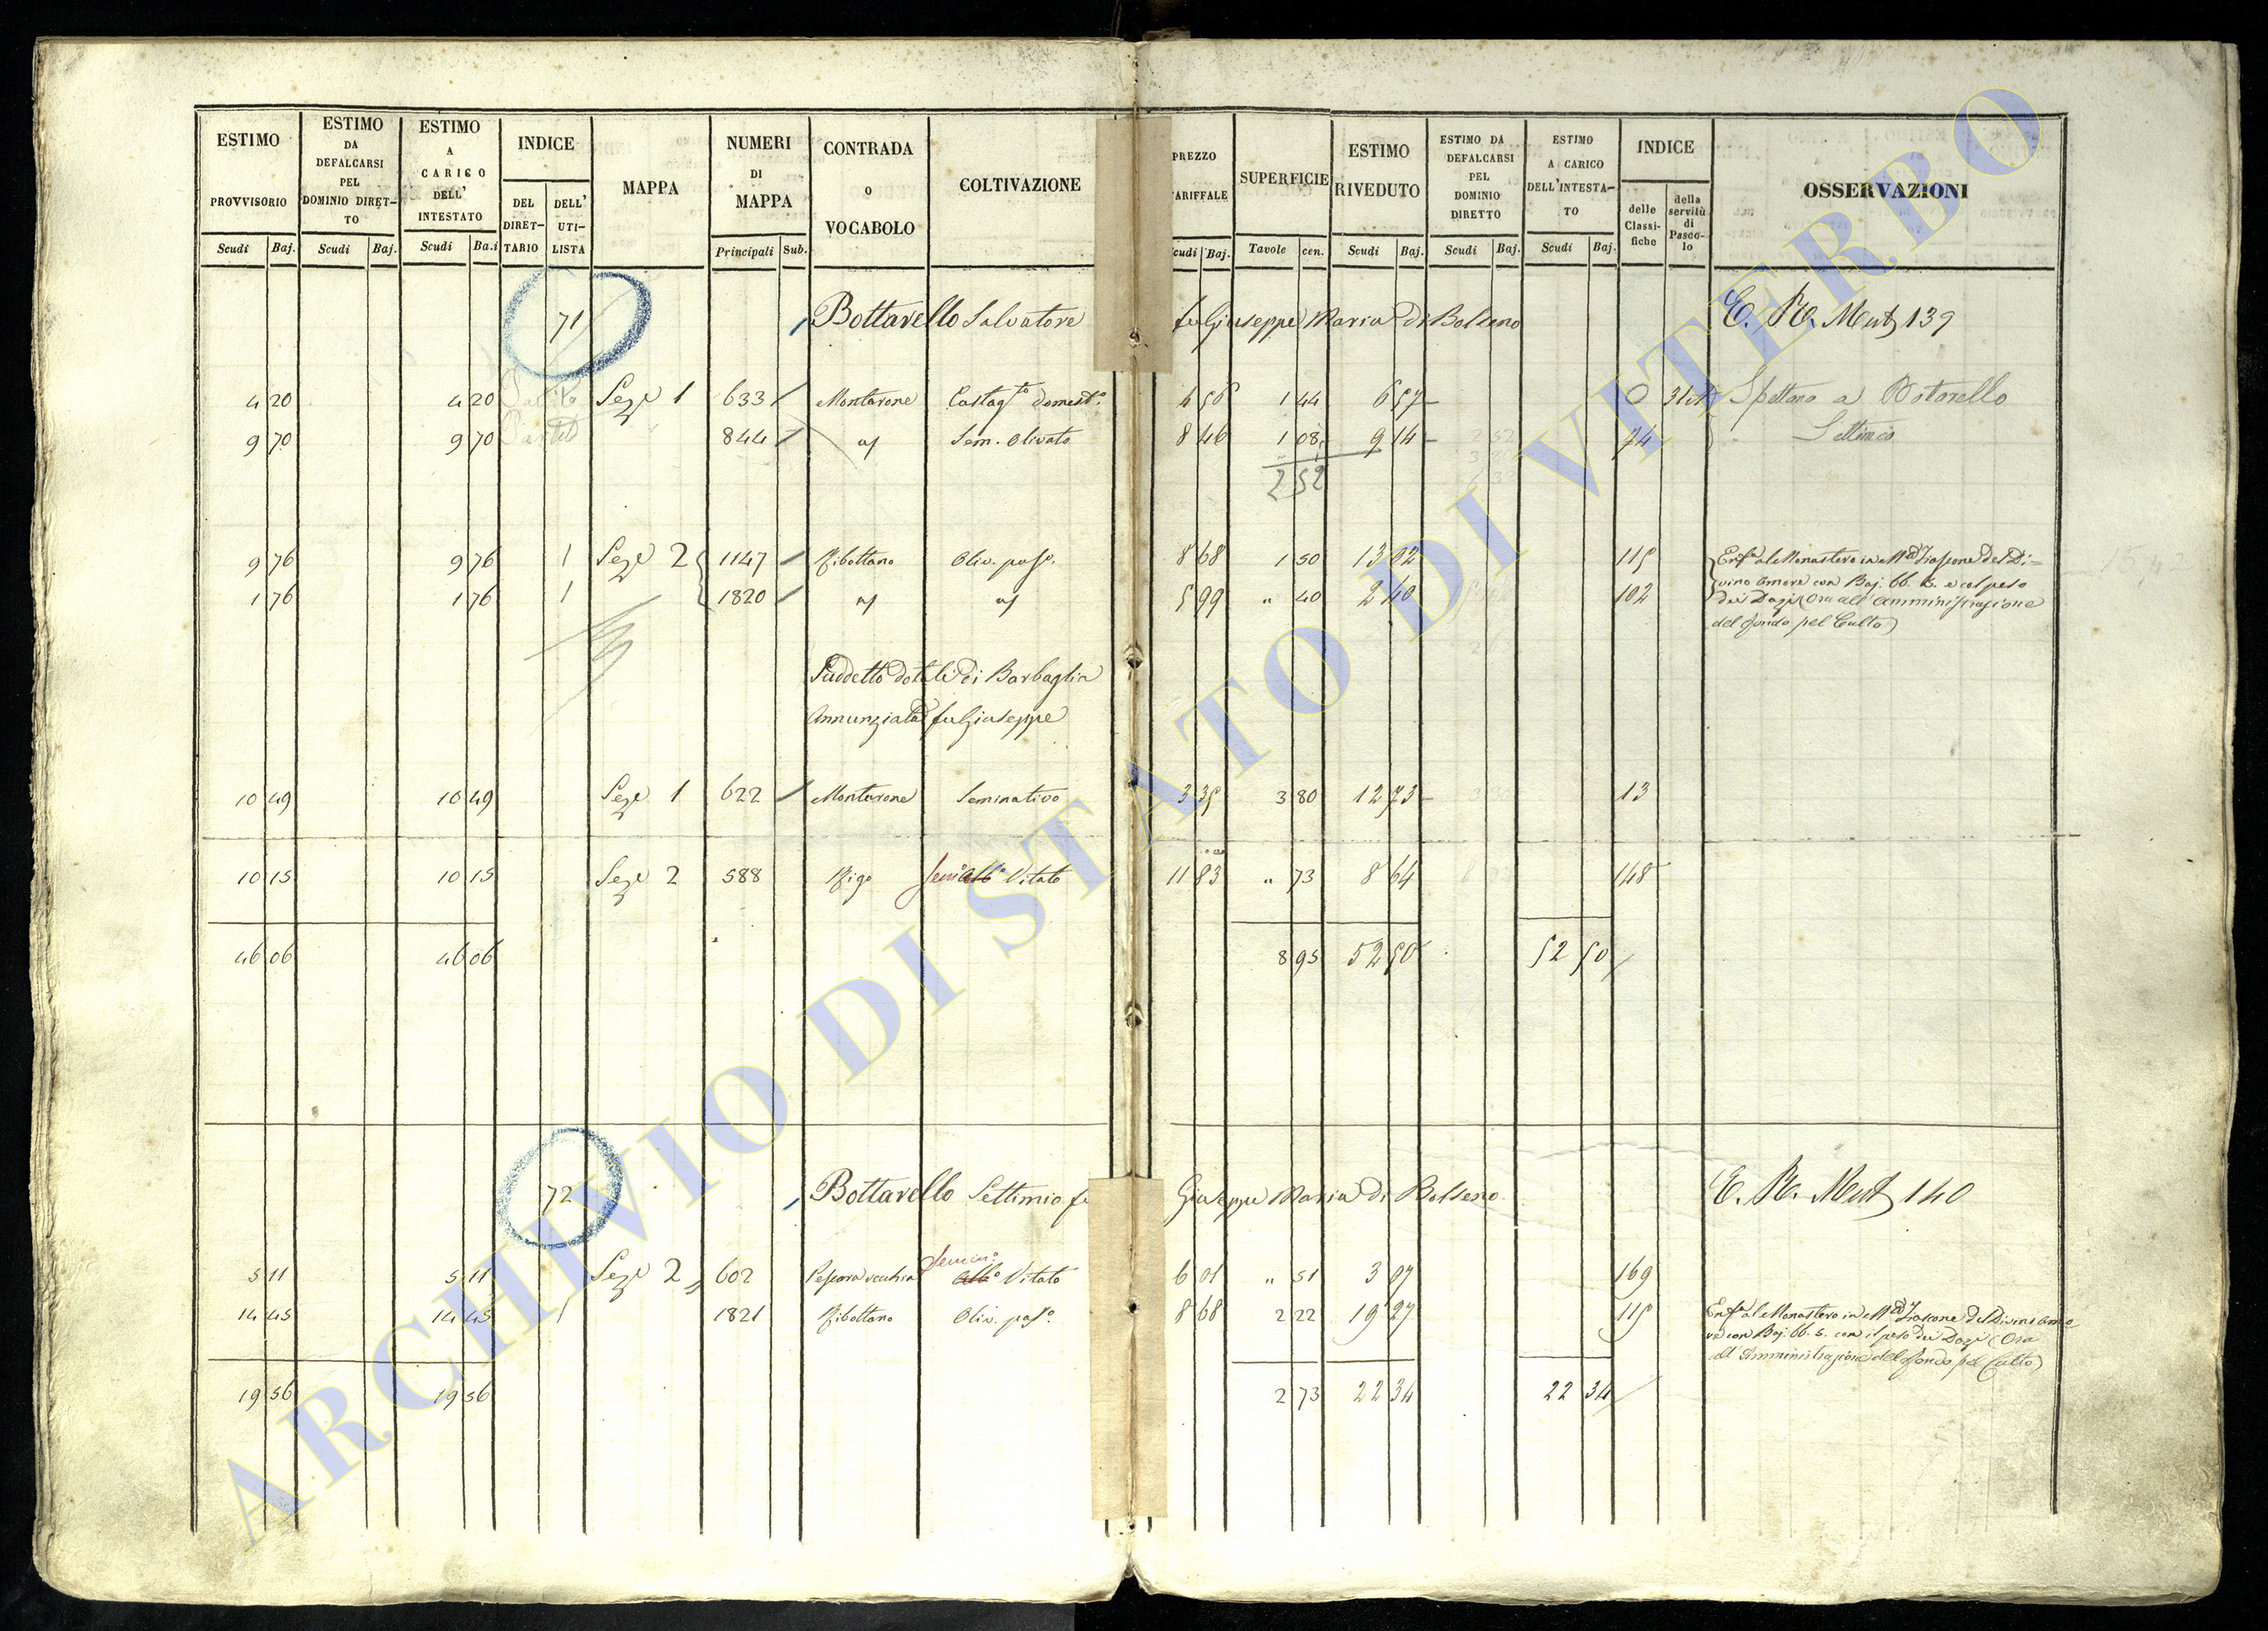 ESTIMO PROVVISORIO Scudi Baj.
ESTIMO DA DEFALCARSI PEL DOMINIO DIRET-TO Scudi Baj.
ESTIMO A CARICO DELL' INTESTATO Scudi Ba.i
INDICE DEL DIRET-TARIO DELL' UTI-LISTA
MAPPA
NUMERI DI MAPPA Principali Sub.
CONTRADA O VOCABOLO
COLTIVAZIONE
PREZZO TARIFFALE Scudi Baj.
SUPERFICIE Tavole cen.
ESTIMO RIVEDUTO Scudi Baj.
ESTIMO DA DEFALCARSI PEL DOMINIO DIRETTO Scudi Baj.
ESTIMO A CARICO DELL'INTESTA-TO Scudi Baj.
INDICE delle Classi-fiche della servitù di Pasco-lo
OSSERVAZIONI
71 Bottarello Salvatore fu Giuseppe Maria di Bolseno 139
4 20 4 20 Sez.e 1 633 Montarone Castag.to domest.o 4 56 1 44 6 57 0 Spettano a Botarello
9 70 9 70 844 Sem. Olivato 8 46 1 08 9 14 74 Settimio
2 52
9 76 9 76 1 Sez.e 2 1147 Ribottano Oliv. pas.o 8 68 1 50 13 02 115 al Monastero in M. Fiascone del Di-
vino Amore con Baj. 66. 5. e col peso
1 76 1 76 1 1820 5 99 " 40 2 40 102 dei Dazj (Ora all'Amministrazione
del fondo pel Culto)
Suddetto dotali di Barbaglia
Annunziata fu Giuseppe
10 49 10 49 Sez.e 1 622 Montarone Seminativo 3 35 3 80 12 73 13
10 15 10 15 Sez.e 2 588 Rigo Sem.o Alb.o Vitato 11 83 " 73 8 64 148
46 06 46 06 8 95 52 50 52 50
72 Bottarello Settimio fu Giuseppe Maria di Bolseno 140
5 11 5 11 Sez.e 2 602 vecchia Sem.o Alb.o Vitato 6 01 " 51 3 07 169
14 45 14 45 1 1821 Ribottano Oliv. pas.o 8 68 2 22 19 27 115 al Monastero in M. Fiascone del Divino Amo
re con Baj. 66. 5. con il peso dei Dazj (Ora
all'Amministrazione del fondo pel Culto)
19 56 19 56 2 73 22 34 22 34
ARCHIVIO DI STATO DI VITERBO